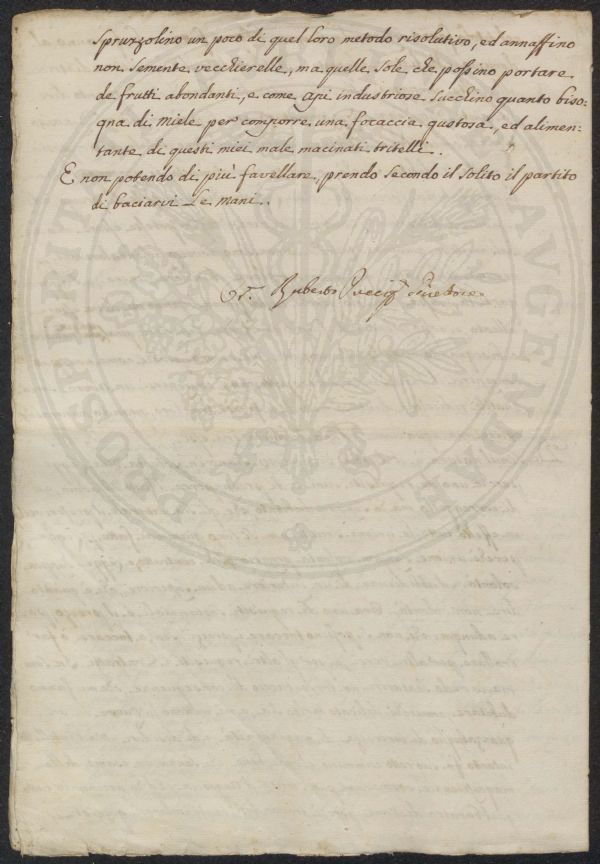 Spruzzolino un poco di quel loro metodo risolutivo, ed annaffino
non semente vecchierelle, ma quelle sole che possino portare
de frutti abondanti, e come Api industriose succhino quanto biso=
gna di miele per comporre una focaccia gustosa, ed alimen=
tante di questi miei male macinati tritelli.
E non potendo di più favellare, prendo secondo il solito il partito
di baciarvi Le mani.
Ruberto
PROSPERITATI AUGENDAE